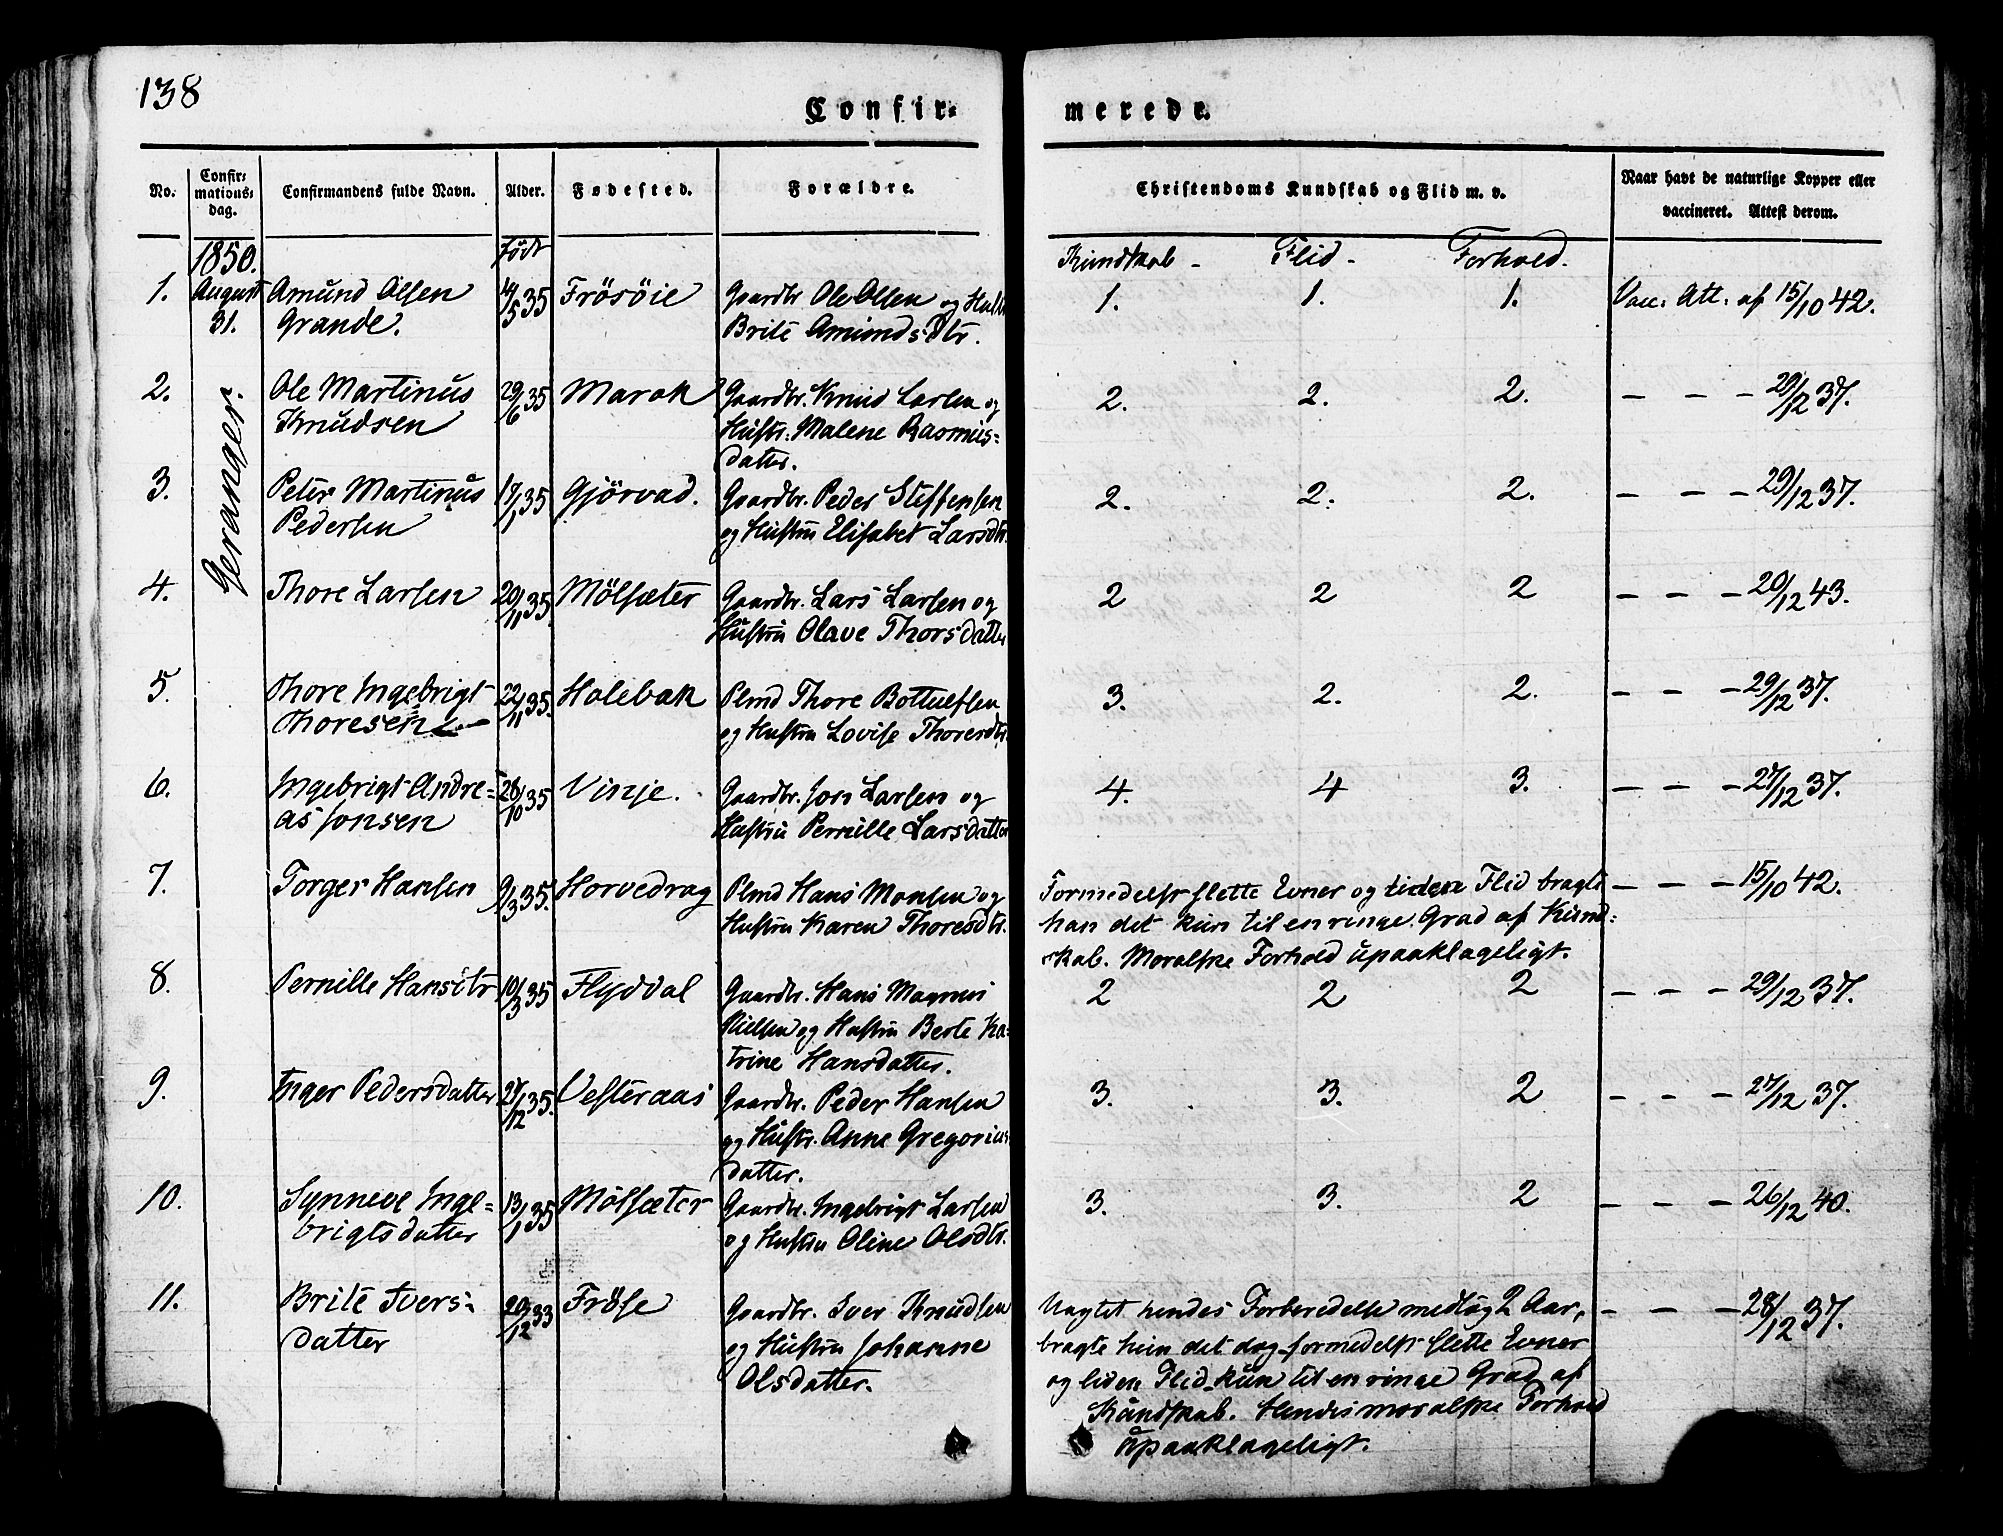 138
Confir-
merede.
No.
Confir-
mations-
dag.
Confirmandens fulde Navn.
Alder.
Fødested.
Forældre.
Christendoms Kundskab og Flid m. v.
Naar havt de naturlige Kopper eller
vaccineret. Attest derom.
1850.
født
Kundskab - Flid - Forhold.
1. August Amund Olsen 14/5 35 Frösöie Gaardbr. Ole Olsen og Hust 1. 1. 1. Vac. Att. af 15/10 42.
31. Grande. Brite Amunds Dtr.
Geranger.
2. Ole Martinus 29/6 35 Marok Gaardbr. Knud Larsen og 2. 2. 2. - - - 29/12 37.
Knudsen Hustr. Malene Rasmus-
datter.
3. Peter Martinus 17/1 35 Gjörvad. Gaardbr. Peder Steffensen 2. 2. 2. - - - 29/12 37.
Pedersen og Hustru Elisabet Larsdtr.
4. Thore Larsen 20/11 35. Mölsæter Gaardbr. Lars Larsen og 2 2 2 - - - 20/12 43.
Hustru Olave Thorsdatter
5. Thore Ingebrigt 22/11 35. Holebak Plmd Thore Bottulfsen 3. 2. 2. - - - 29/12 37.
Thoresen og Hustru Lovise Thoresdtr.
6. Ingebrigt Andre- 28/10 35 Vinje. Gaardbr. Jon Larsen og 4. 4 3. - - - 27/12 37.
as Jonsen Hustru Pernille Larsdatter
7. Torger Hansen 9/3 35. Horvedrag Plmd Hans Monsen og Formedelst slette Evner og liden Flid bragte - - - 15/10 42.
Hustru Karen Thoresdtr. han det kun til en ringe Grad af Kund-
skab. Moralske Forhold upaaklageligt.
8. Pernille Hansdtr 10/3 35 Flydval Gaardbr. Hans Magnus 2 2 2 - - - 29/12 37.
Nielsen og Hustru Berte Ka-
trine Hansdatter.
9. Inger Pedersdatter 27/12 35. Vesteraas Gaardbr. Peder Hansen 3. 3. 2 - - - 27/12 37.
og Hustr. Anne Gregorius-
datter.
10. Synneve Inge- 13/1 35 Mölsæter Gaardbr. Ingebrigt Larsen 3. 3. 2 - - - 26/12 40.
brigtsdatter og Hustru Oline Olsdtr.
11. Brite Ivers- 20/12 33 Fröse Gaardbr. Iver Knudsen Uagtet hendes Forberedelse medtog 2 Aar, - - - 28/12 37.
datter og Hustru Johanne bragte hun det dog formedelst slette Evner
Olsdatter. og liden Flid kun til en ringe Grad af
Kundskab. Hendes moralske Forhold
upaaklageligt.